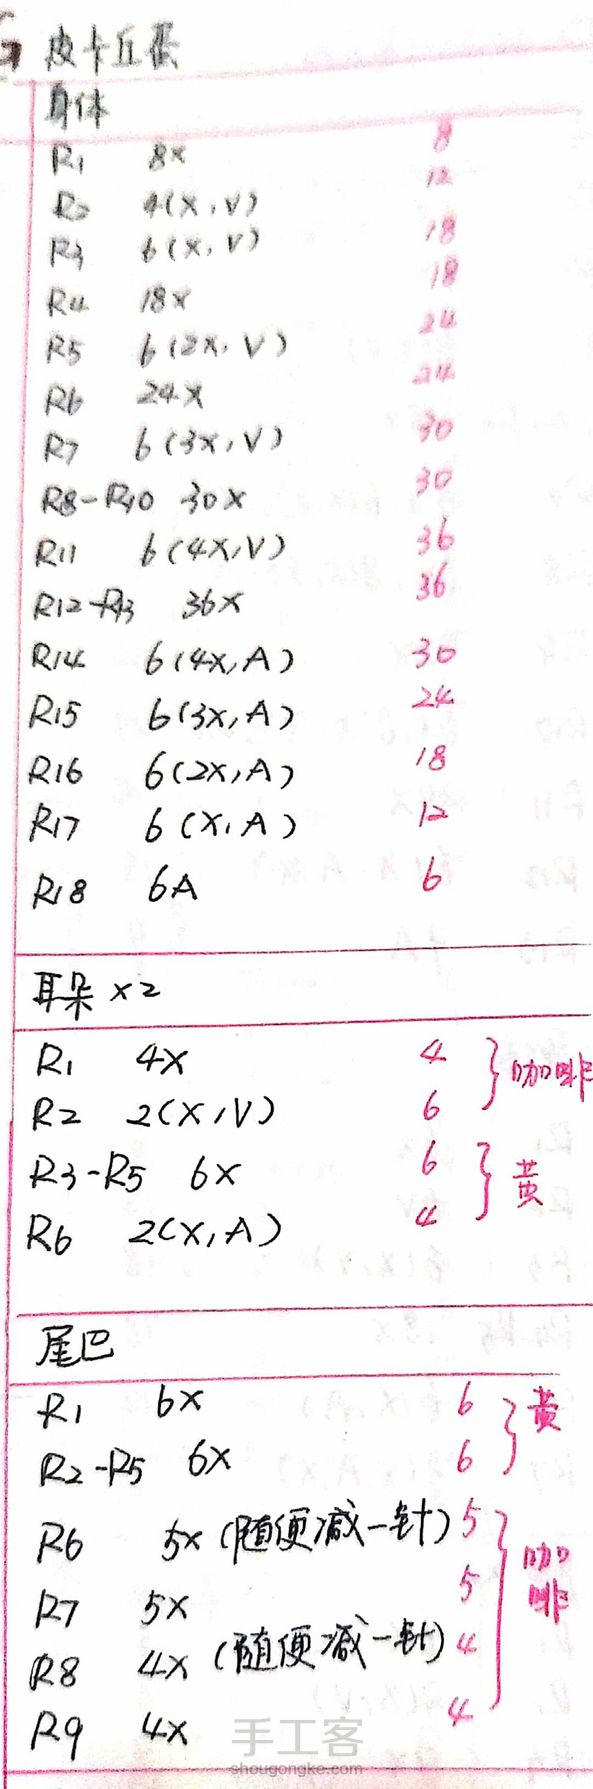 皮卡丘蛋
身体
R1 8x 8
R2 4(x,v) 12
R3 6(x,v) 18
R4 18x 18
R5 6(2x,v) 24
R6 24x 24
R7 6(3x,v) 30
R8-R10 30x 30
R11 6(4x,v) 36
R12-R13 36x 36
R14 6(4x,A) 30
R15 6(3x,A) 24
R16 6(2x,A) 18
R17 6(x,A) 12
R18 6A 6
耳朵x2
R1 4x 4 咖啡
R2 2(x,v) 6
R3-R5 6x 6 黄
R6 2(x,A) 4
尾巴
R1 6x 6 黄
R2-R5 6x 6
R6 5x(随便减一针) 5 咖啡
R7 5x 5
R8 4x(随便减一针) 4
R9 4x 4
手工客
shougongke.com